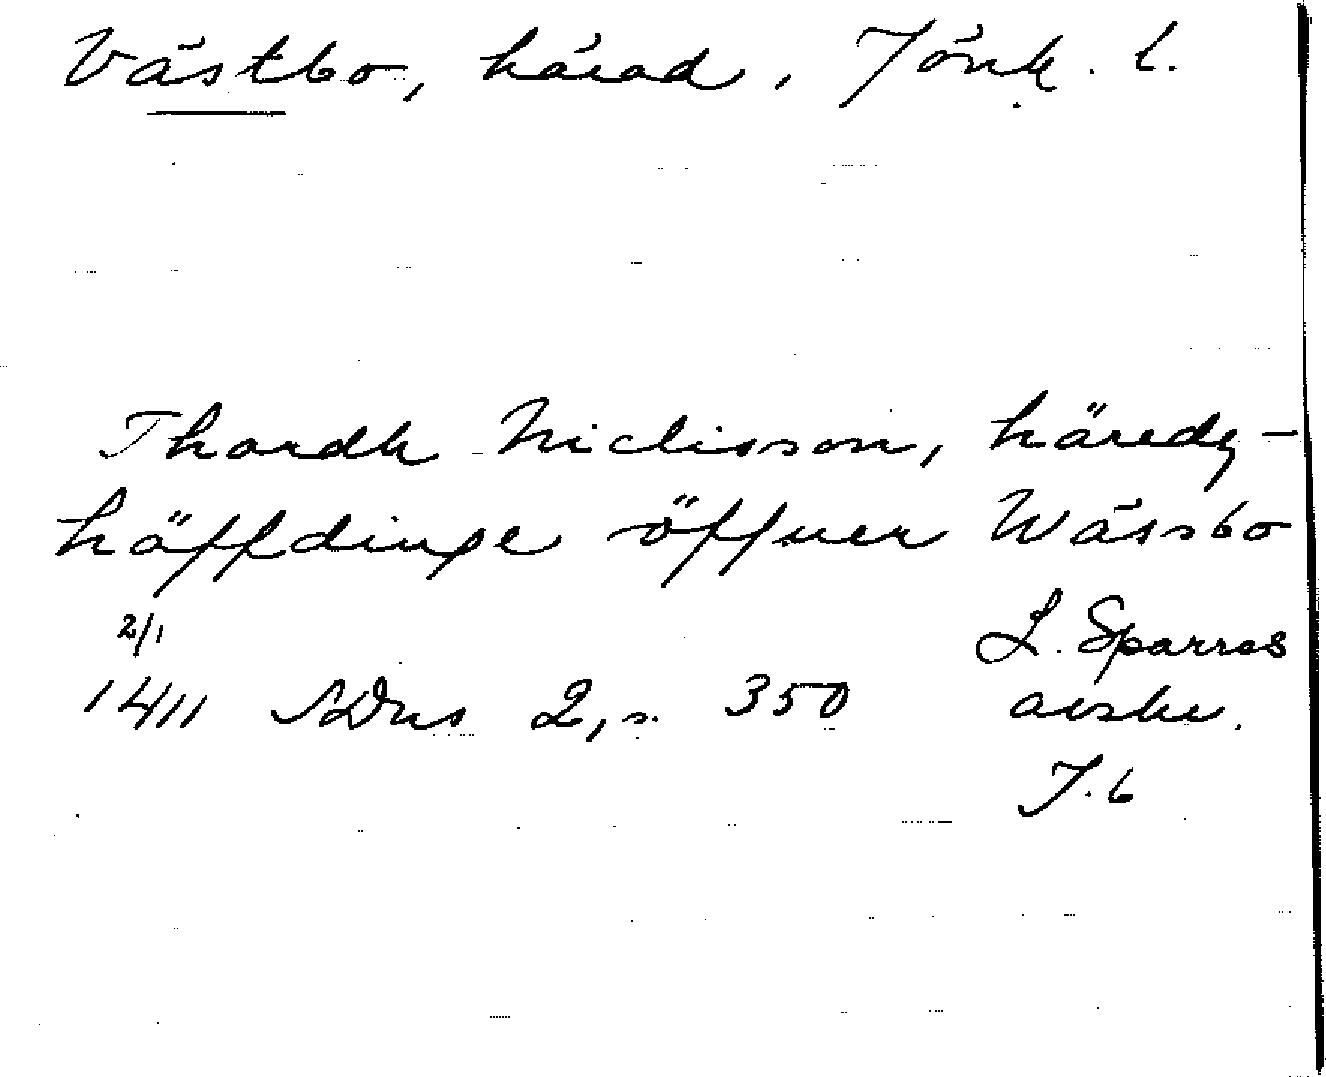 Västbo, härad, Jönk. l.
Thordh Niclisson, häredz-
häffdinge öffuer Wässbo
2/1
1411 SDns 2, s. 350 L. Sparres
avskr.
J. b